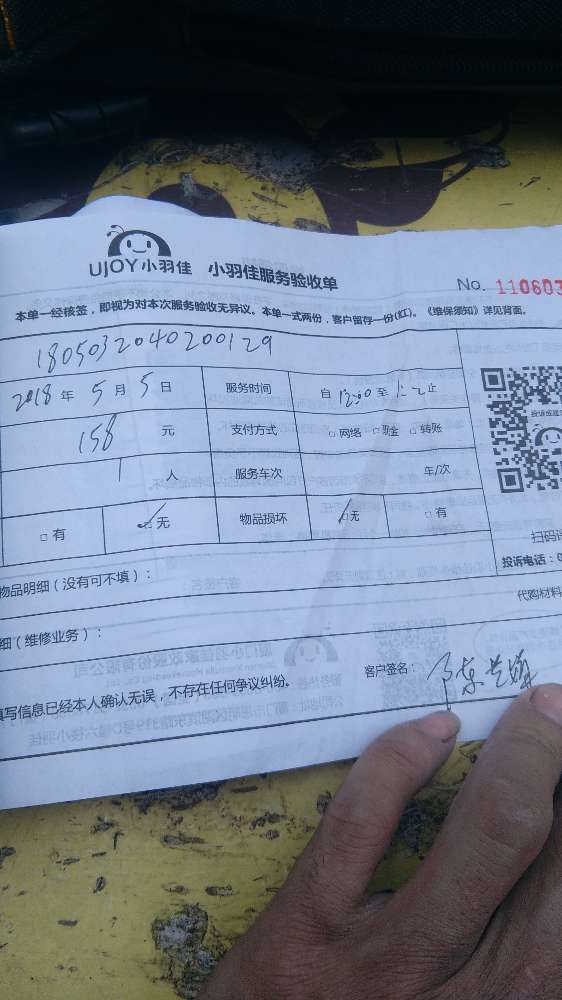 UJOY小羽佳 小羽佳服务验收单 No. 110603
本单一经核签，即视为对本次服务验收无异议。本单一式两份，客户留存一份(红)。《维保须知》详见背面。
1805032040200129
2018年5月5日 服务时间 自 至 止
158 元 支付方式 □网络 □现金 □转账
1 人 服务车次 年/次
□有 □无 物品损坏 □无 □有
扫码
物品明细（没有可不填）： 投诉电话：0
细（维修业务）： 代购材料
填写信息已经本人确认无误，不存在任何争议纠纷。 客户签名：